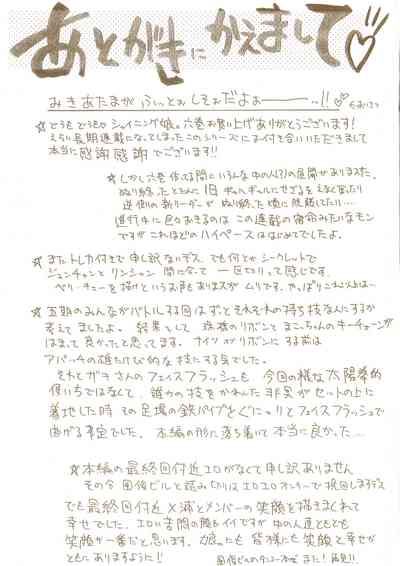 あとがきに かえまして♡
みきあたまがふぃっとぉしそぉだよぉーーー..!!♡♡
☆どうもどうもシャイニング娘。六巻お買い上げありがとうございます!
えらい長期連載になってしまったこのシリーズにお付き合いいただきまして
本当に感謝感謝でございます!!
☆しかし六巻作ってる間にいろんな中の人(?)の展開がありました。
ぬり終ったとたんに1日
逆側の新リーダーが ぬり終った頃に脱退してたり…
進行中に色々おきるのは この連載の宿命みたいなモン
ですが これほどのハイペースははじめてでしたよ。
☆またトレカ付せで申し訳ないデス でも何とかシークレットで
ジュンチュンとリンシュン 間に合って 一区切りって感じです。
☆五期のみんながバトルする回はずっとそれぞれの持ち技なんにするか
考えてましたよ。結果として 麻琴のリボンと まこっちゃんのキーチェーンが
はまって良かったと思ってます。
アパッチの雄たけび的な技にする気でした。
それとガキさんのフェイスフラッシュも 今回の様な太陽拳的
使いちではなくて 誰かの技をかわした 非実がセットの上に
着地した時 その足場の鉄パイプをぐにゃりとフェイスフラッシュで
曲がる予定でした。本編の形に落ち着いて本当に良かった…
☆本編の最終回付近エロがなくて申し訳ありません
その分 
でも最終回付近×減とメンバーの笑顔を描きまくれて
幸せでした。エロい苦悶の顔もイイですが 中の人達ともども
笑顔が一番だと思います。娘。にも 皆様にも 笑顔と幸せが
ともにありますように!!
また!再見!!